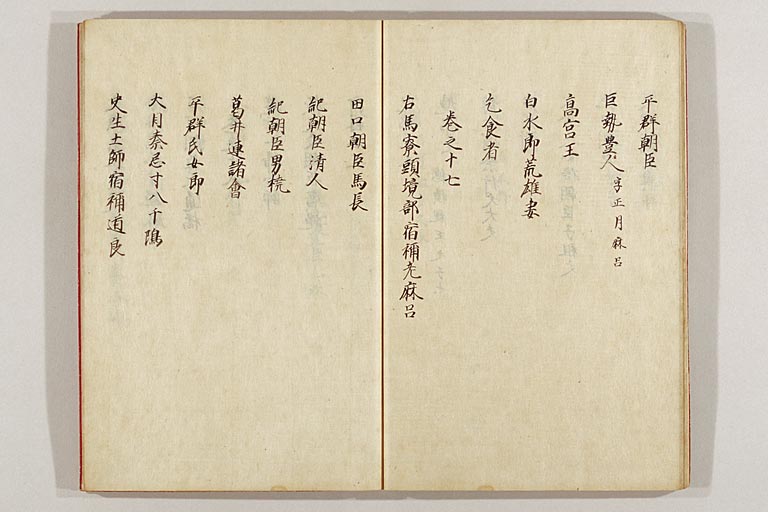 平群朝臣
巨勢豊人 字正月麻呂
高宮王
白水郎荒雄妻
乞食者
巻之十七
右馬寮頭境部宿祢老麻呂
田口朝臣馬長
紀朝臣清人
紀朝臣男梶
葛井連諸會
平群氏女郎
大目秦忌寸八千隝
史生土師宿祢道良